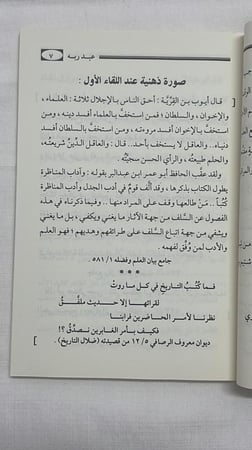 عبد ربه
٧
صورة ذهنية عند اللقاء الأول :
[ قال أيوب بن القِرِّيَّة : أحق الناس بالإجلال ثلاثة : العلماء ،
والإخوان ، والسلطان ؛ فمن استخفَّ بالعلماء أفسد دينه ، ومن
استخفَّ بالإخوان أفسد مروءته ، ومن استخفَّ بالسلطان أفسد
دنياه . والعاقل لا يستخفُّ بأحد .. قال : والعاقل الدِّينُ شريعتُه ،
والحلم طبيعتُه ، والرأي الحسن سجيَّته .
ولقد عقَّب الحافظ أبو عمر ابن عبدالبر بقوله : وآداب المناظرة
يطول الكتاب بذكرها ، وقد ألَّف قومٌ في أدب الجدل وأدب المناظرة
كُتُبًا .. مَنْ طالعها وقف على المراد منها .. وفيما ذكرناه في هذه
الفصول عن السلف من جهة الآثار ما يغني ويكفي ، بل ما يغني
ويشفي من جهة اتباع السلف على طرائقهم وهديهم ؛ فهو العلم
والأدب لمن وُفِّق لفهمه .
جامع بيان العلم وفضله ١/ ٥٨١
* * *
فما كُتُبُ التاريخ في كل ما روتْ
لقرائها إلا حديث ملفَّقُ
نظرنا لأمر الحاضرين فرابنا
فكيف بأمر الغابرين نصدِّقُ ؟!
ديوان معروف الرصافي ٥/ ١٢ من قصيدته ( ضلال التاريخ ) . ]